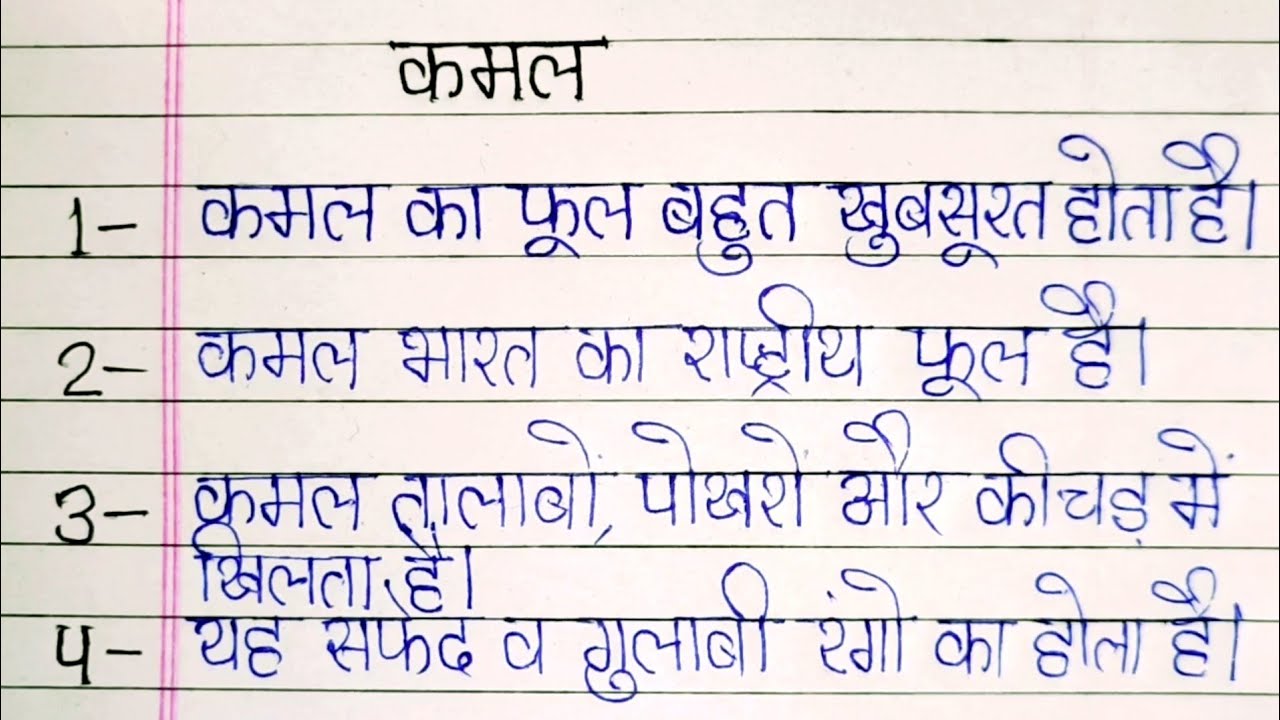 कमल
1- कमल का फूल बहुत खुबसूरत होता है।
2- कमल भारत का राष्ट्रीय फूल है।
3- कमल तालाबों, पोखरो और कीचड़ में
खिलता है।
4- यह सफेद व गुलाबी रंगो का होता है।